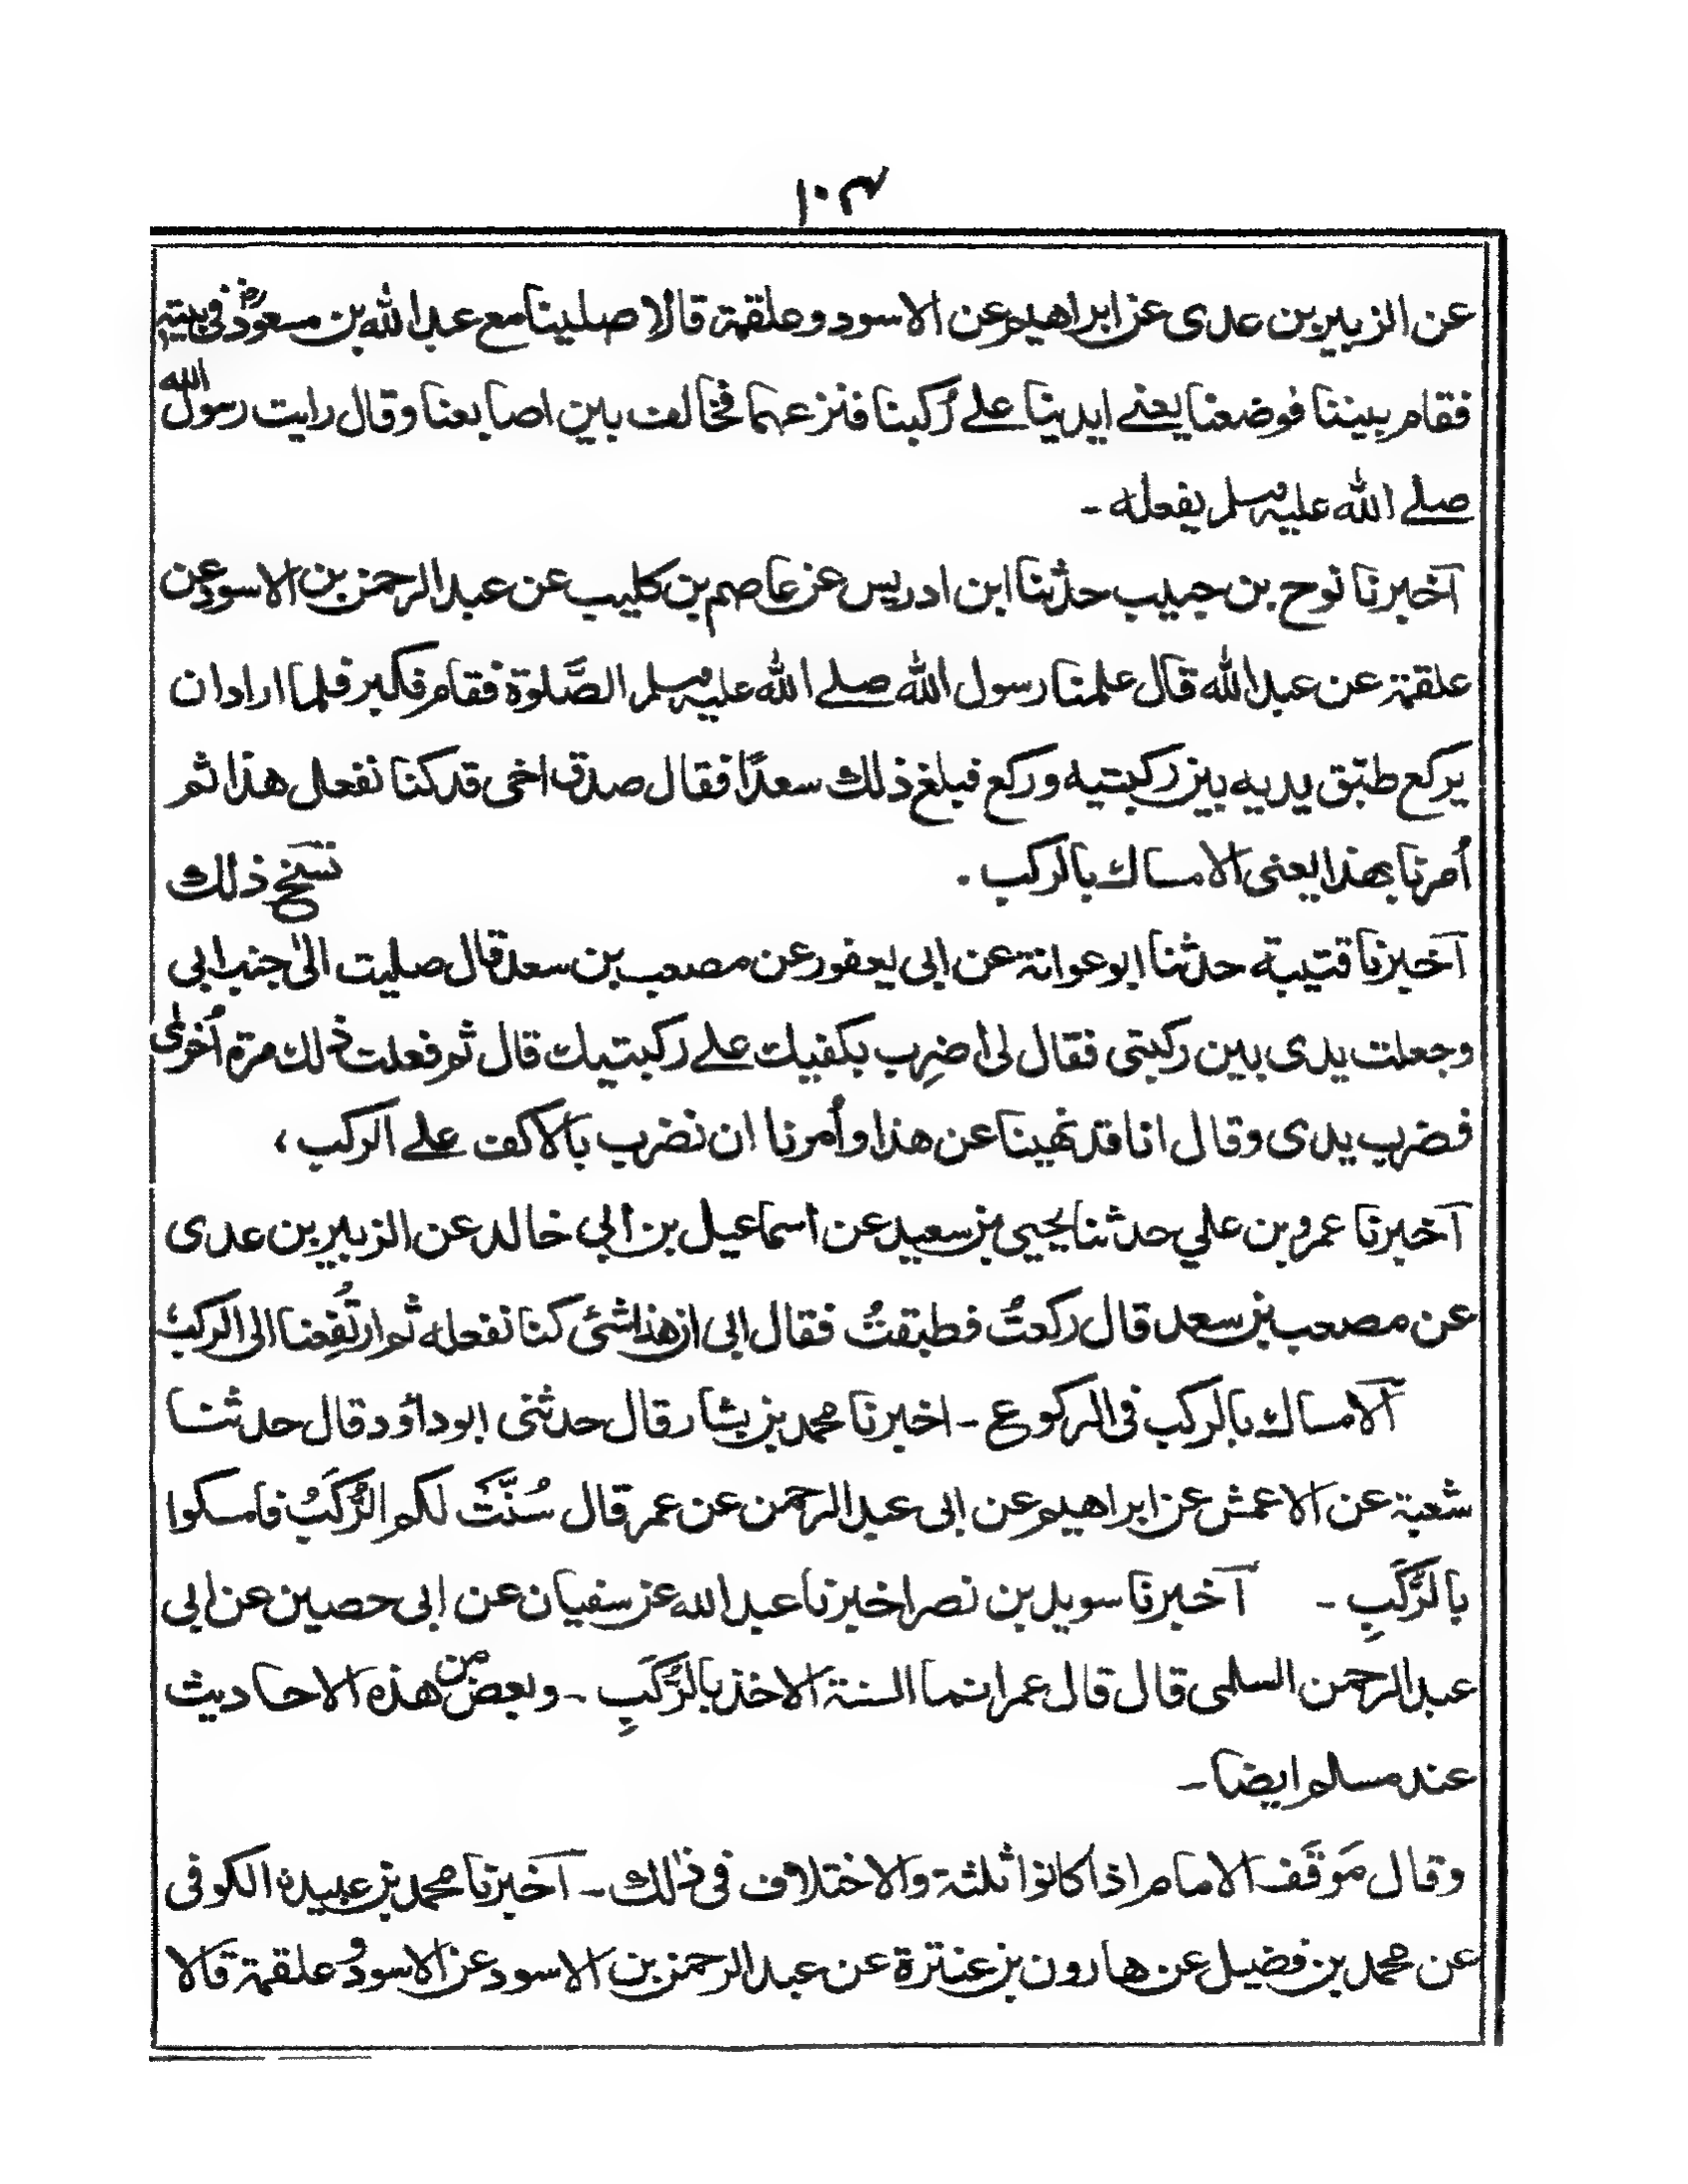 ١٠٤
عن الزبير بن عدى عن ابراهيم عن الاسود وعلقمة قالا صلينا مع عبد الله بن مسعودؓ فى بيته
فقام بيننا فوضعنا يعنے ايدينا علے ركبنا فنزعهما فخالف بين اصابعنا وقال رايت رسول الله
صلے الله عليه وسلم يفعله -
آخبرنا نوح بن حبيب حدثنا ابن ادريس عن عاصم بن كليب عن عبد الرحمن بن الاسود عن
علقمة عن عبد الله قال علمنا رسول الله صلے الله عليه وسلم الصَّلوة فقام فكبر فلما اراد ان
يركع طبّق يديه بين ركبتيه وركع فبلغ ذلك سعدًا فقال صدق اخى قد كنا نفعل هذا ثم
اُمرنا بهذا يعنى الامساك بالركب . نسخ ذلك
آخبرنا قتيبة حدثنا ابو عوانة عن ابى يعفور عن مصعب بن سعد قال صليت الىٰ جنب ابى
وجعلت يدى بين ركبتى فقال لى اضرِب بكفيك علے ركبتيك قال ثم فعلت ذلك مرّة اُخرىٰ
فضرب يدى وقال انا قد نُهينا عن هذا واُمرنا ان نضرب بالاكف علے الركب ،
آخبرنا عمرو بن علي حدثنا يحيى بن سعيد عن اسماعيل بن ابي خالد عن الزبير بن عدى
عن مصعب بن سعد قال ركعتُ فطبقتُ فقال ابى ان هذا شئ كنا نفعله ثم ارتُفِعنا الى الركب
آلامساك بالركب فى الركوع - اخبرنا محمد بن بشار قال حدثنى ابو داوٗد قال حدثنا
شعبة عن الاعمش عن ابراهيم عن ابى عبد الرحمن عن عمر قال سُنّتَ لكم الرُّكَبُ فامسكوا
بالرُّكَبِ - آخبرنا سويد بن نصر اخبرنا عبد الله عن سفيان عن ابى حصين عن ابى
عبد الرحمن السلمى قال قال عمر انما السنة الاخذ بالرُّكَبِ - وبعض من هذه الاحاديث
عند مسلم ايضا -
وقال مَوقَف الامام اذا كانوا ثلثة والاختلاف فى ذٰلك - آخبرنا محمد بن عبيدة الكوفى
عن محمد بن فضيل عن هارون بن عنترة عن عبد الرحمن بن الاسود عن الاسود و علقمة قالا